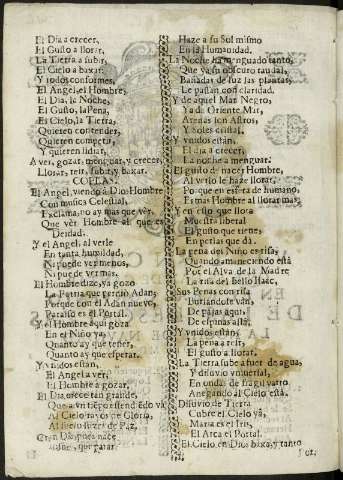 El Dia a crecer,
El Gusto a llorar,
La Tierra a subir,
El Cielo a baxar.
Y todos conformes,
El Angel, el Hombre,
El Dia, la Noche,
El Gusto, la Pena,
El Cielo, la Tierra,
Quieren contender,
Quieren competir,
Y quieren lidiar,
A ver, gozar, menguar, y crecer,
Llorar, reir, subir, y baxar.
COPLAS.
El Angel, viendo à Dios Hombre
Con musica Celestial,
Exclama, no ay mas que vèr,
Que vèr Hombre al que es
Deidad.
Y el Angel, al verle
En tanta humildad,
Ni puede ver menos,
Ni puede ver mas.
El Hombre dize, ya gozo
La Patria que perdiò Adan,
Porque con el Adan nuevo,
Paraiso es el Portal.
Y el Hombre aqui goza
En el Niño ya,
Quanto ay que tener,
Quanto ay que esperar.
Y unidos estàn,
El Angel a ver,
El Hombre a gozar.
El Dia crece tan grande,
Que a un tiẽpo estendiẽdo và
Al Cielo rayos de Gloria,
Al suelo luzes de Paz,
Gran Dia que nace
que gozar
Haze a su Sol mismo
En la Humanidad.
La Noche ha menguado tanto,
Que ya su obscuro raudal,
Bañadas de luz las plantas,
Le passan con claridad.
Y de aquel Mar Negro,
Ya de Oriente Mar,
Arenas son Astros,
Y Soles cristal.
Y unidos estàn,
El dia a crecer,
La noche a menguar.
El gusto de nacer Hombre,
Al verlo le haze llorar,
Porque en esfera de humano,
Es mas Hombre al llorar mas.
Y en esto que llora
Muestra liberal
El gusto que tiene,
En perlas que dà.
La pena del Niño es risa,
Quando amaneciendo està
Por el Alva de la Madre
La risa del bello Isaac,
Sus Penas con risa
Burlandose vàn,
De pajas aqui,
De espinas allà.
Y unidos estàn,
La pena a reir,
El gusto a llorar.
La Tierra sube a ser de agua,
Y diluvio universal,
En ondas de fragil varro
Anegando al Cielo està.
Diluvio de Tierra
Cubre el Cielo yà,
Maria es el Iris,
El Arca el Portal.
El Cielo en Dios baxa, y tanto